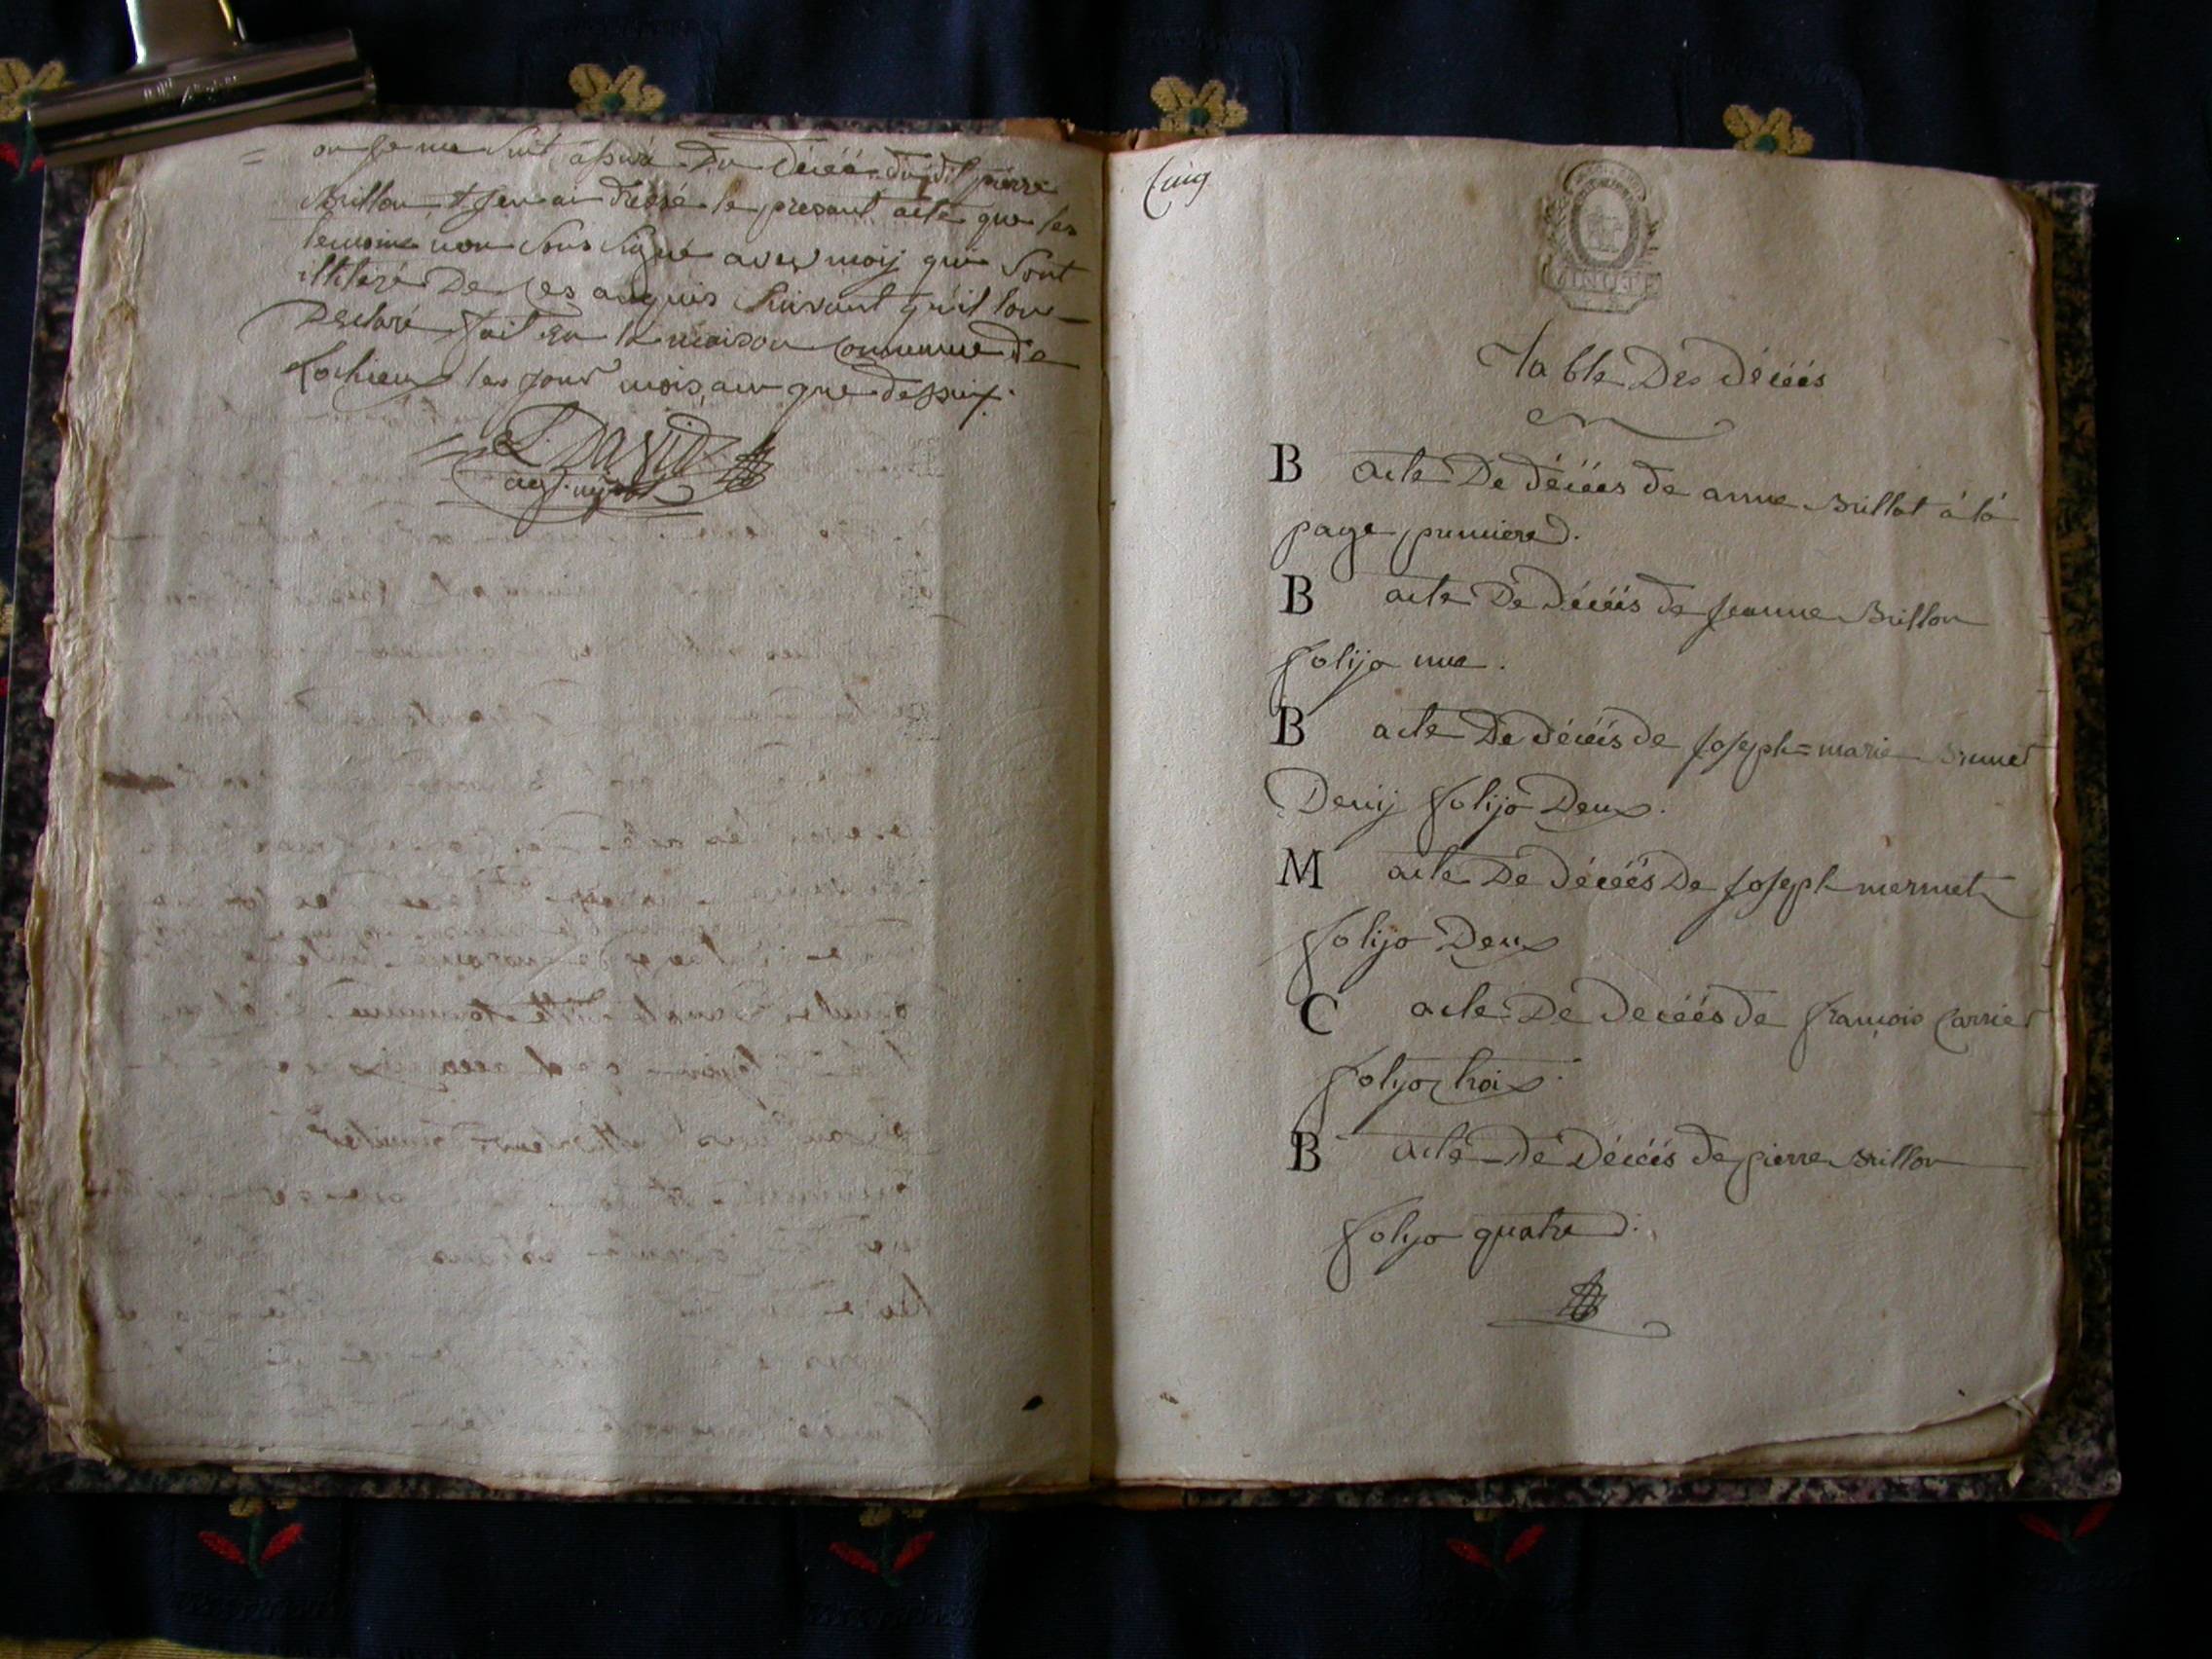 on je me suit assuré du décéé dudit pierre
Brillon, et jen ai dressé le present acte que les
temoins non sous signé avec moij qui sont
illiteré de ces anquis suivant qu'il l'on
declaré fait en la maison commune de
Lochieux les jour mois, an que dessux.
L. David
agt. mpal
Cinq
MINUTE
Table Des décéés
B acte De décéés de anne Brillat à la
page premiere.
B acte De décéés de jeanne Brillon
folijo une.
B acte De décéés de joseph=marie Brunet
Denij folijo Deux.
M acte De décéés De joseph mermet
folijo Deux
C acte De decéés de françois Carrier
folyo trois.
B acte De Décéés de pierre Brillon
folyo quatre.